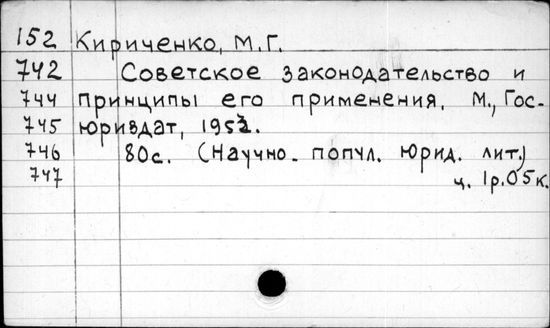 152 Кириченко, М.Г.
742 Советское законодательство и
744 принципы его применения. М., Гос-
745 юриздат,
746 80с. (Научно-попул. юрид. лит.)
747 ц. 1р.05к.